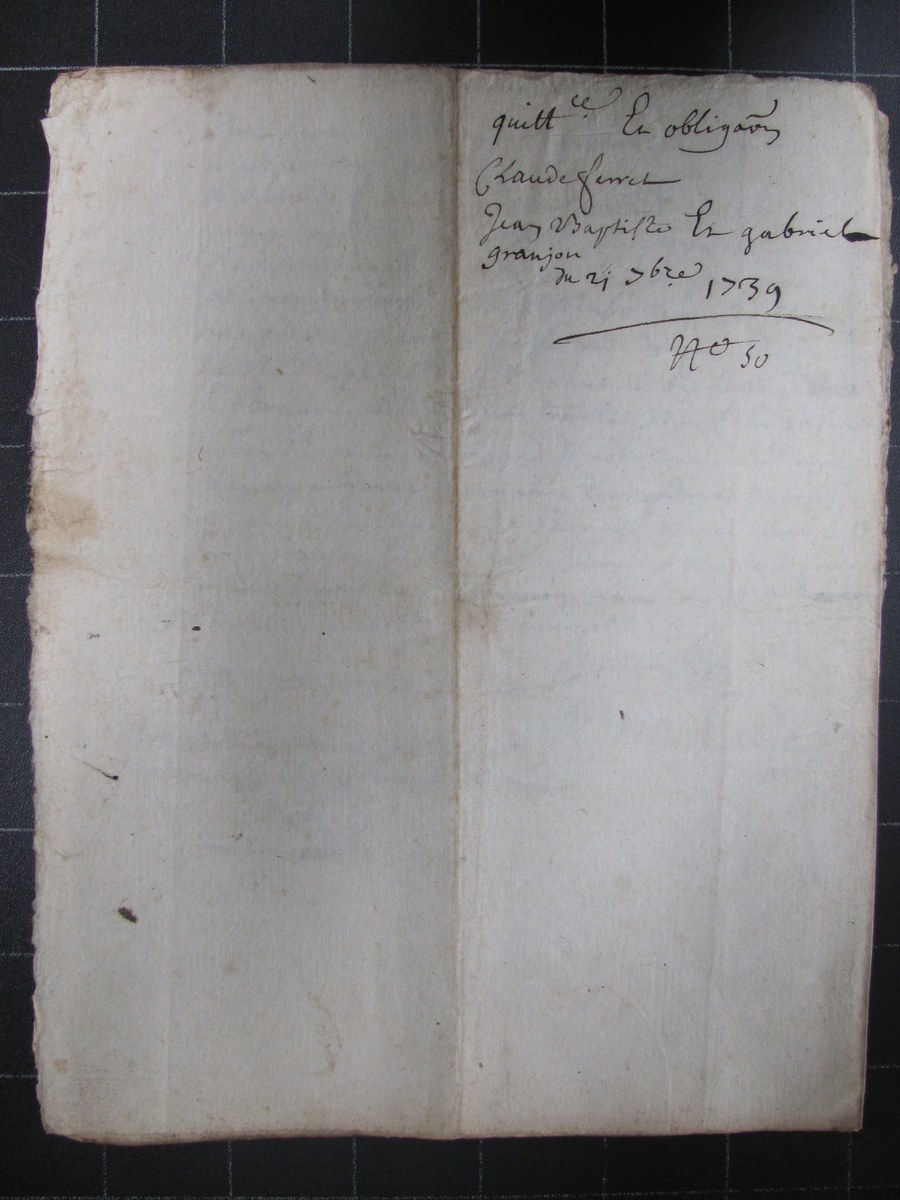 quittce Et obligaon
Claude ferret
Jean Baptiste Et gabriel
granjon
du 21 7bre 1739
No 50